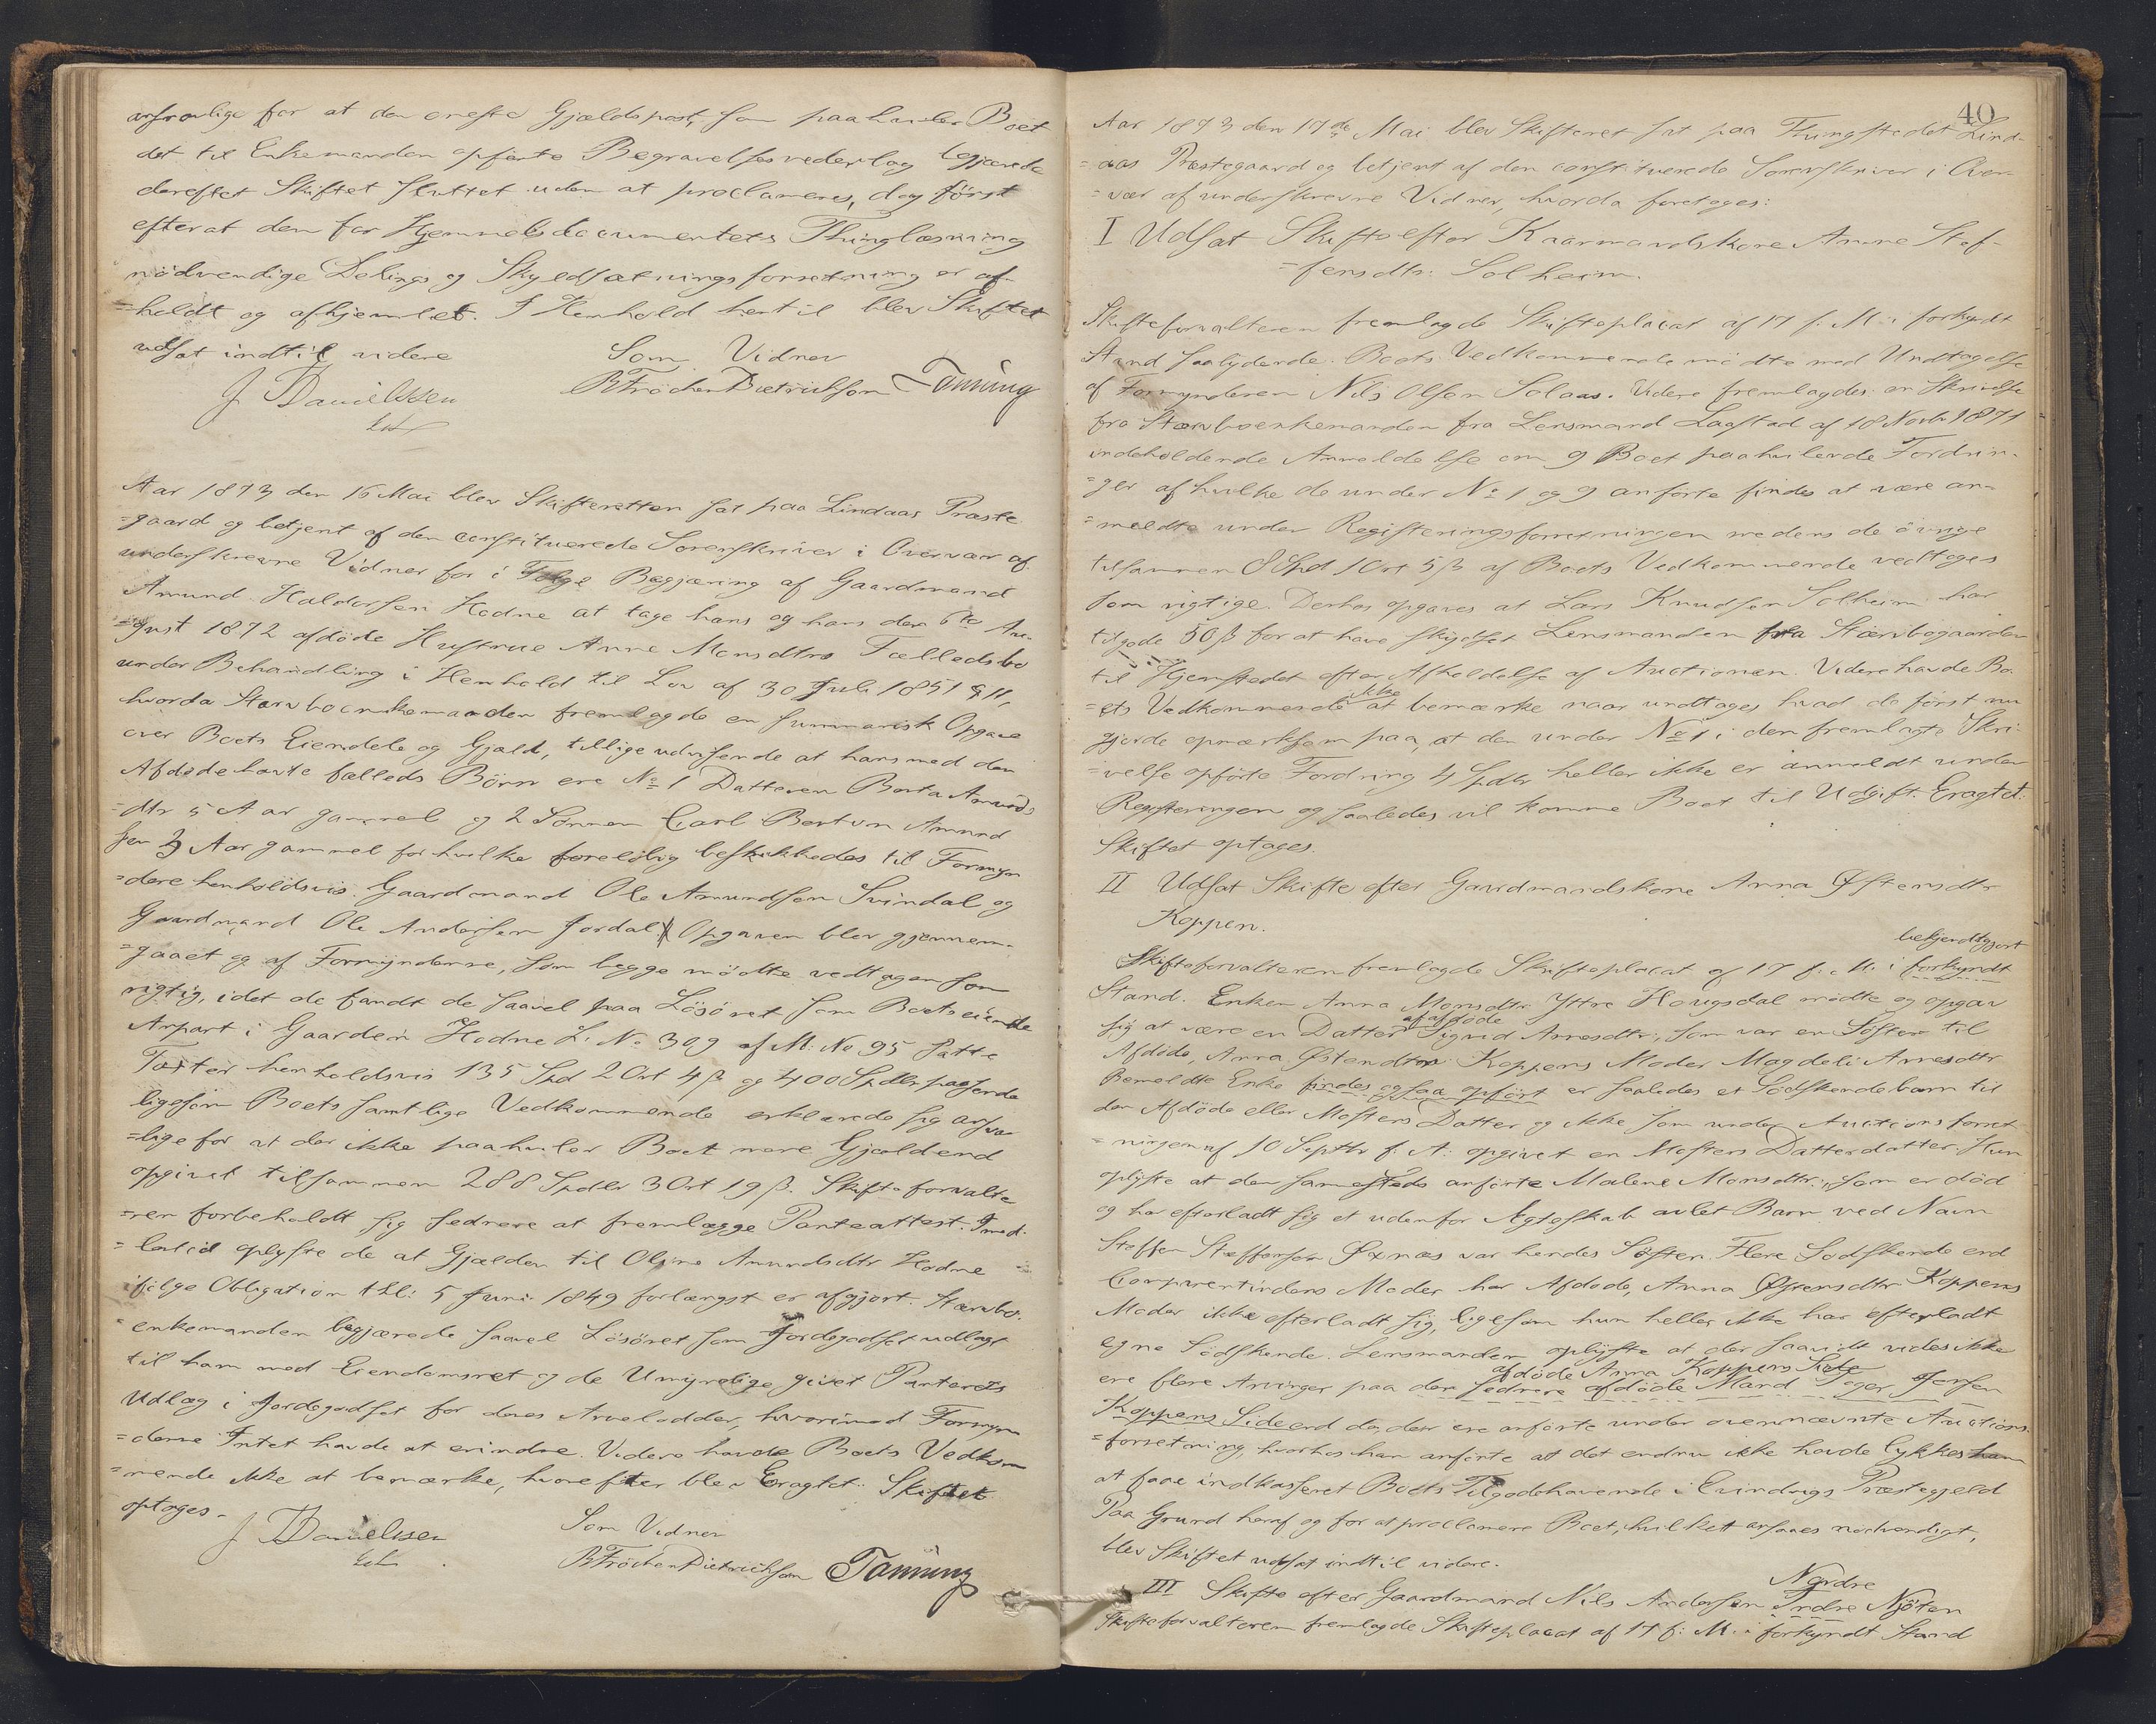 ansvarlige for at den eneste Gjældspost, som paahviler Boet
det til Enkemanden opførte Begravelsesvederlag begjærede
dereftet Skiftet sluttet uden at proclameres, dog først
efterat den for Hjemmelsdocumentets Thinglæsning
nödvendige Delings og Skyldsætningsforretning er af-
=holdt og afhjemlet. I Henhold hertil blev Skiftet
udsat indtil videre
Som Vidner
J Danielssen
B Frøchen Dietrichson Tönning
Aar 1873 den 16 Mai blev Skifteretten sat paa Lindaas Præste
=gaard og betjent af den constituerede Sorenskriver i Overvær af
underskrevne Vidner for i Følge Begjæring af Gaardmand
Amund Haldorsen Hodne at tage hans og hans den 6te Au-
=gust 1872 afdöde Hustrue Anne Monsdtrs Fælledsbo
under Behandling i Henhold til Lov af 30 Juli 1851 § 11,
hvorda Stervboenkemanden fremlagde en summarisk Opgave
over Boets Eiendele og Gjæld, tillige udvisende at hans med den
Afdøde havte fælleds Börn ere No 1 Datteren Berta Amunds
=dtr 5 Aar gammel og 2 Sönnen Carl Bertin Amund
sen 3 Aar gammel for hvilke foreløbig beskikkedes til Formyn
=dere henholdsvis Gaardmand Ole Amundsen Svindal og
Gaardmand Ole Andersen Jordal. Opgaven blev gjennem-
=gaaet og af Formynderne, som begge mödte vedtagen som
rigtig, idet de fandt de saavel paa Lösöret som Boets eiende
Anpart i Gaarden Hodne L. No 309 af M. No 95 satte
Taxter henholdsvis 135 Spd 2 Ort 4 ß og 400 Spdlr passende
ligesom Boets samtlige Vedkommende erklærede sig ansva
=lige for at der ikke paahviler Boet mere Gjæld end
opgivet tilsammen 288 Spdlr 3 Ort 19 ß. Skifteforvalte
=ren forbeholdt sig sednere at fremlægge Panteattest. Imid-
=lertid oplyste de at Gjælden til Oline Amundsdtr Hodne
ifølge Obligation thl: 5 Juni 1849 forlængst er afgjort. Stervbo-
=enkemanden begjærede saavel Lösöret som Jordegodset udlagt
til ham med Eiendomsret og de Umyndige givet Panterets
Udlæg i Jordegodset for deres Arvelodder, hvorimod Formyn
=derne Intet havde at erindre. Videre havde Boets Vedkom
=mende ikke at bemærke, hvorefter blev Eragtet: Skiftet
optages.
Som Vidner
J Danielssen
B Frøchen Dietrichson Tönning
40
Aar 1873 den 17de Mai blev Skifteret sat paa Thingstedet Lind-
=aas Præstegaard og betjent af den constituerede Sorenskriver i Over-
=vær af underskrevne Vidner, hvorda foretoges:
I Udsat Skifte efter Kaarmandskone Anne Stef-
=fensdtr. Solheim.
Skifteforvalteren fremlagde Skifteplacat af 17 f. M. i forkyndt
Stand saalydende. Boets Vedkommende mödte med Undtagelse
af Formynderen Nils Olsen Solaas. Videre fremlagdes en Skrivelse
fra Stervboenkemanden fra Lensmand Laastad af 18 Novbr 1871
indeholdende Anmeldelse om 9 Boet paahvilende Fordrin-
=ger af hvilke de under No 1 og 9 anførte findes at være an-
=meldte under Registreringsforretningen medens de övrige
tilsammen 8 Spd 1 Ort 5 ß af Boets Vedkommende vedtoges
som rigtige. Derhos opgaves at Lars Knudsen Solheim har
tilgode 50 ß for at have skydset Lensmanden fra Stervbogaarden
til Hjemstedet efter Afholdelse af Auctionen. Videre havde Bo-
=ets Vedkommende ikke at bemærke naar undtages hvad de først nu
gjorde opmærksom paa, at den under No 1 i den fremlagte Skri-
=velse opførte Fordring 4 Spdlr heller ikke er anmeldt under
Registreringen og saaledes vil komme Boet til Udgift. Eragtet:
Skiftet optages.
II Udsat Skifte efter Gaardmandskone Anna Østensdtr
Koppen.
bekjendtgjort
Skifteforvalteren fremlagde Skifteplacat af 17 f. M. i forkyndt
Stand. Enken Anna Monsdtr Yttre Hougsdal mødte og opgav
sig at være en Datter af afdöde Sigrid Arnesdtr, som var en Söster til
Afdöde, Anna Østensdtr Koppens Moder Magdeli Arnesdtr
Bemeldte Enke findes ogsaa opfört er saaledes et Södskendebarn til
den Afdöde eller Mosters Datter og ikke som under Auctionsforret
=ningen af 10 Septbr f. A. opgivet en Mosters Datterdatter. Hun
oplyste at den sammesteds anførte Malene Monsdtr, som er död
og har efterladt sig et udenfor Ægteskab avlet Barn ved Navn
Steffen Steffensen Øxnæs var hendes Söster. Flere Södskende end
Comparentindens Moder har Afdöde, Anna Østensdtr Koppens
Moder ikke efterladt sig, ligesom hun heller ikke har efterladt
egne Södskende. Lensmanden oplyste at der saavidt vides ikke
afdöde Anna Koppens Side
ere flere Arvinger paa den sednere afdöde Mand
Koppens Side end de, der ere anførte under ovennævnte Auctions-
=forretning, hvorhos han anførte at det endnu ikke havde lykkes ham
at faae indkasseret Boets Tilgodehavende i Evindvigs Præstegjeld
Paa Grund heraf og for at proclamere Boet, hvilket ansaaes nødvendigt,
blev Skiftet udsat indtil videre.
Nordre
III Skifte efter Gaardmand Nils Andersen Indre Njöten
Skifteforvalteren fremlagde Skifteplacat af 17 f. M. i forkyndt Stand